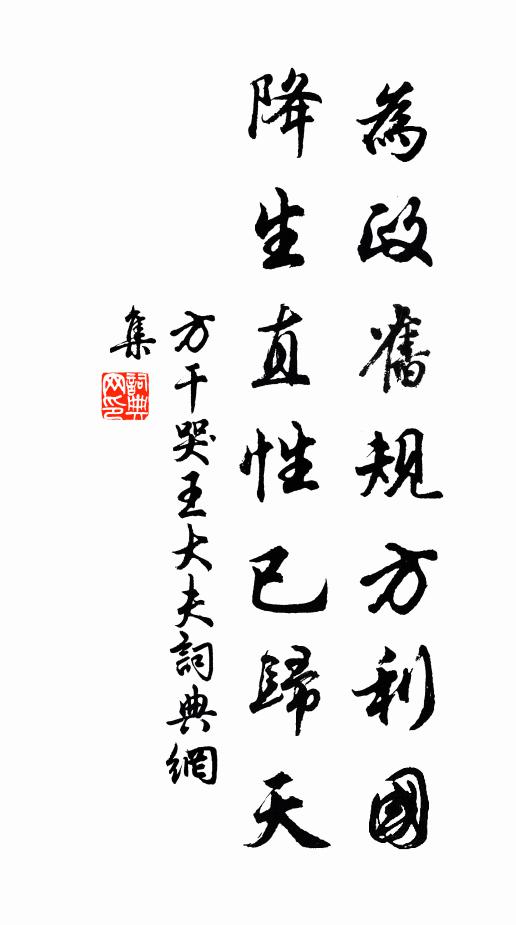 為政舊規方利國
降生直性已歸天
方干哭王大夫詞典網
集
詞典
网印